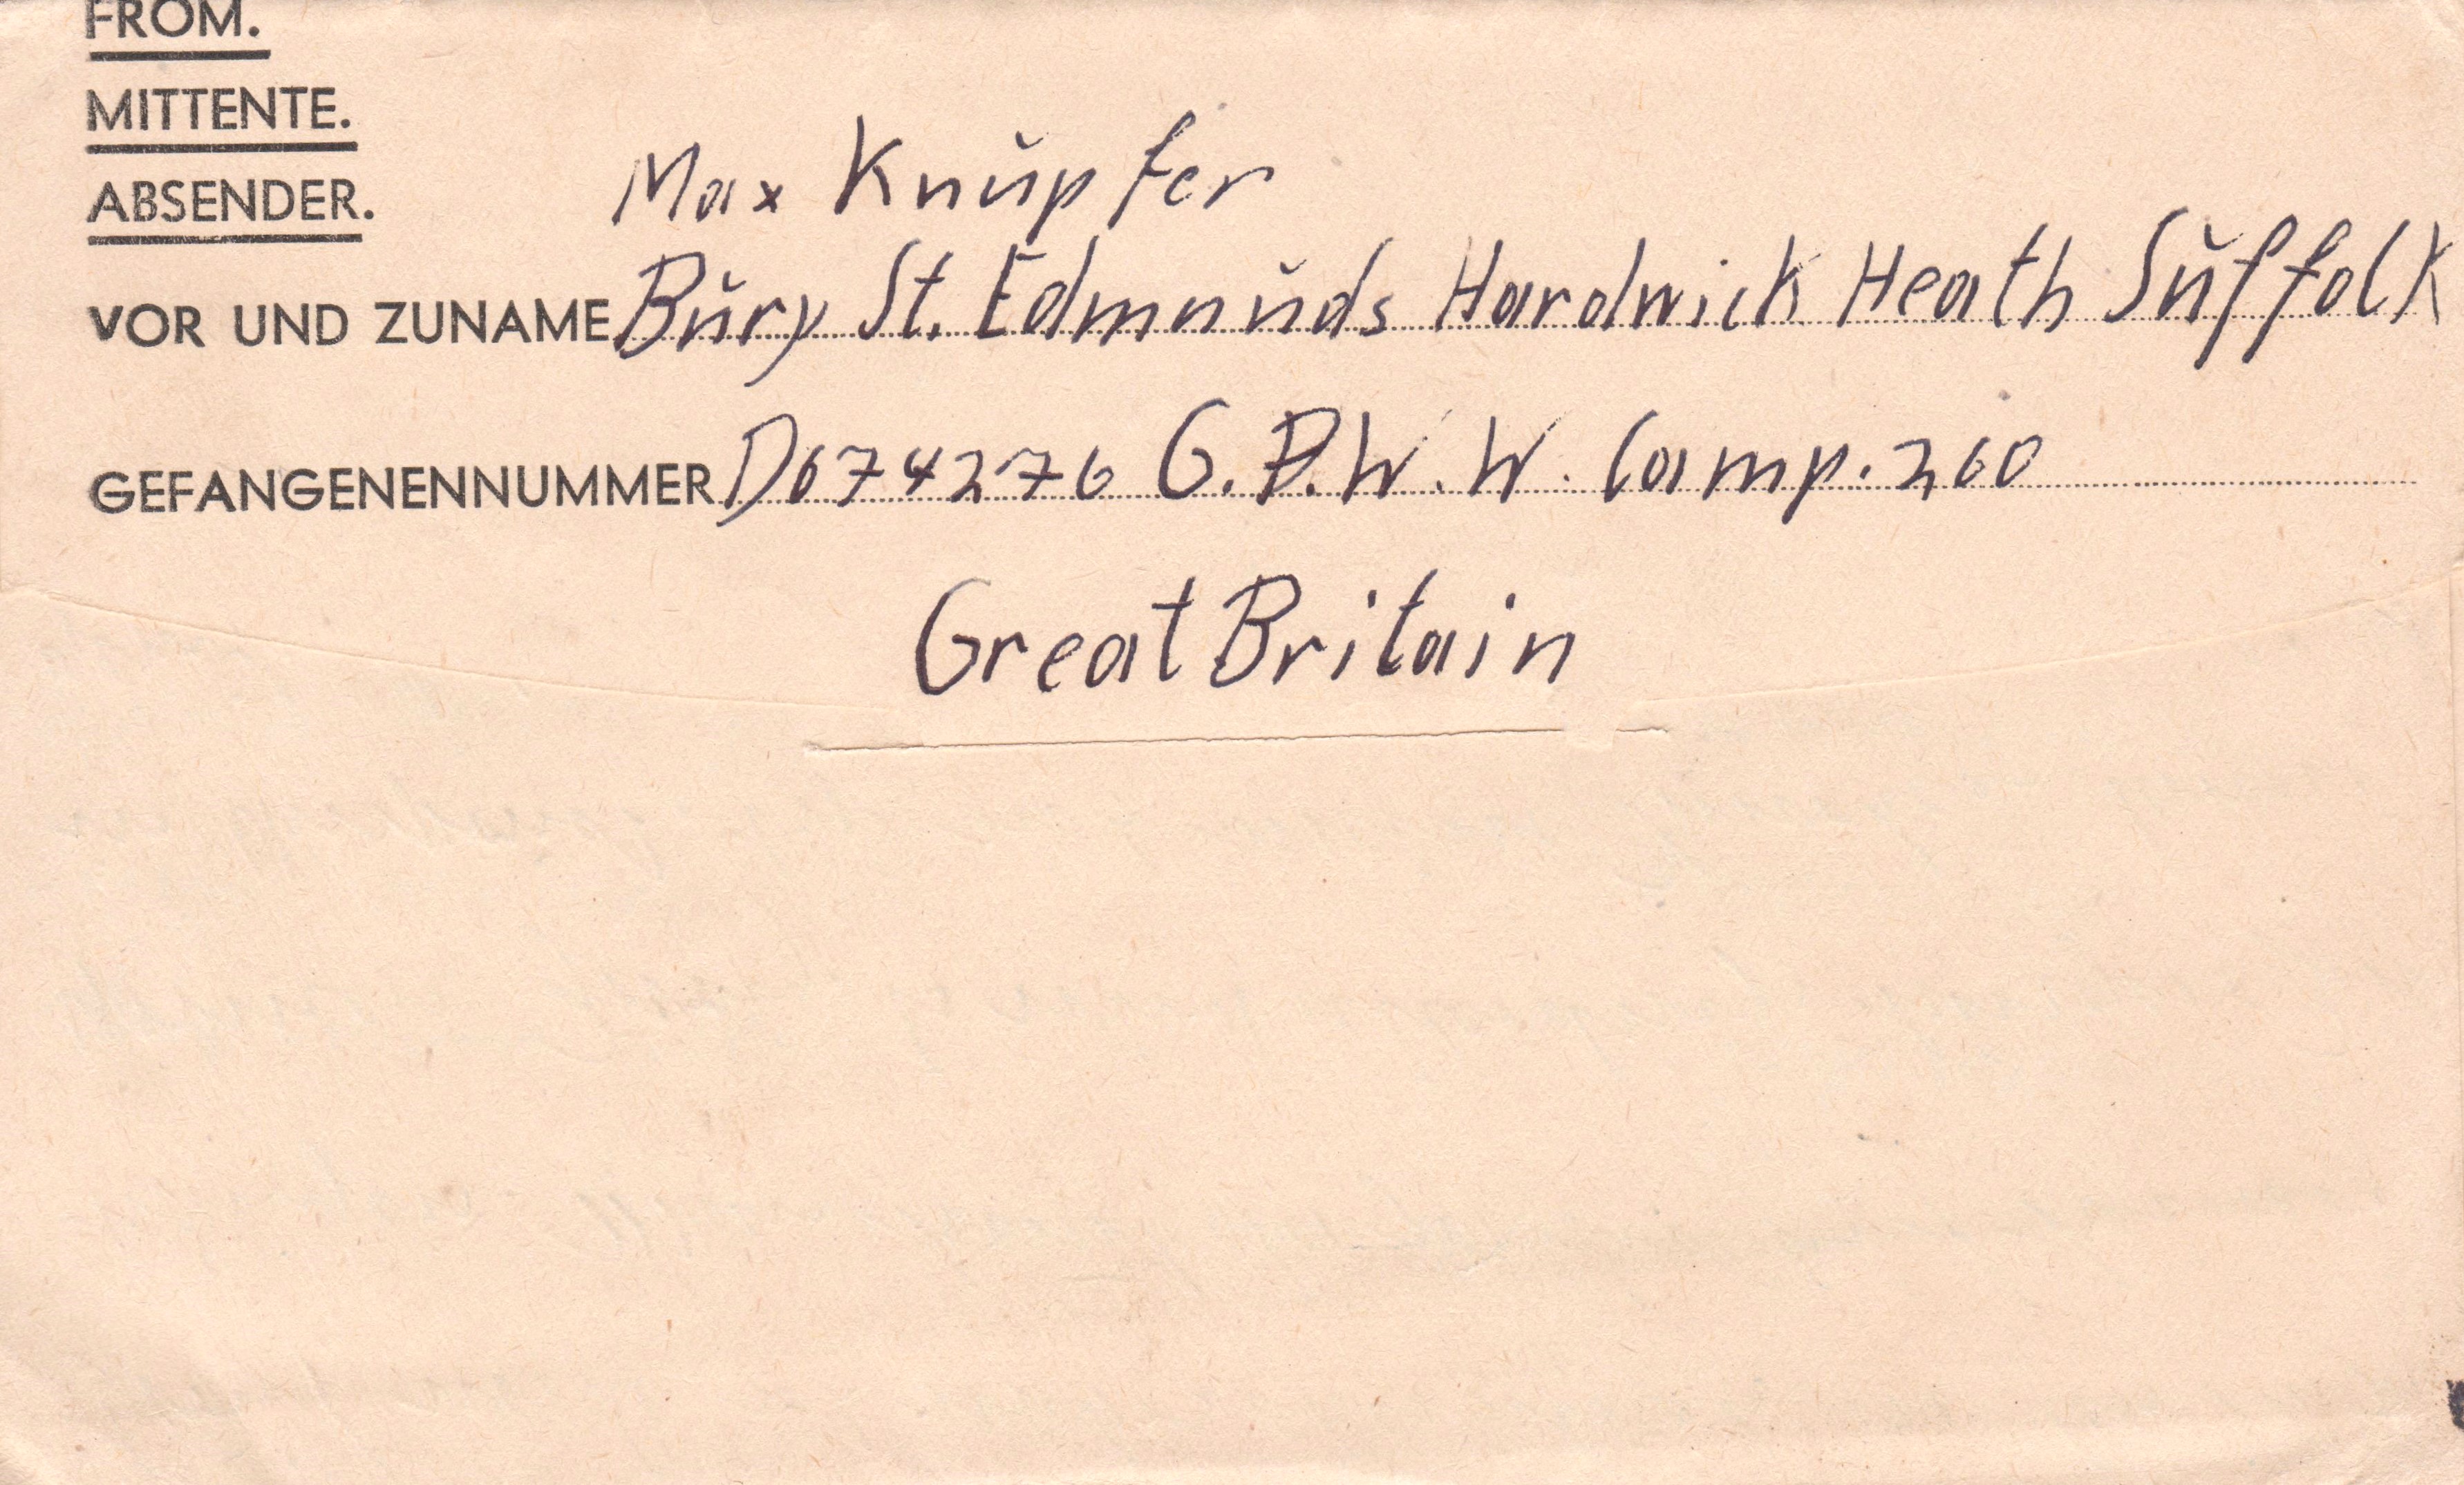 FROM.
MITTENTE.
ABSENDER.
Max Knupfer
VOR UND ZUNAME Bury St. Edmunds Hardwick Heath Suffolk
GEFANGENENNUMMER D674276 G.P.W.W. Camp. 260
Great Britain